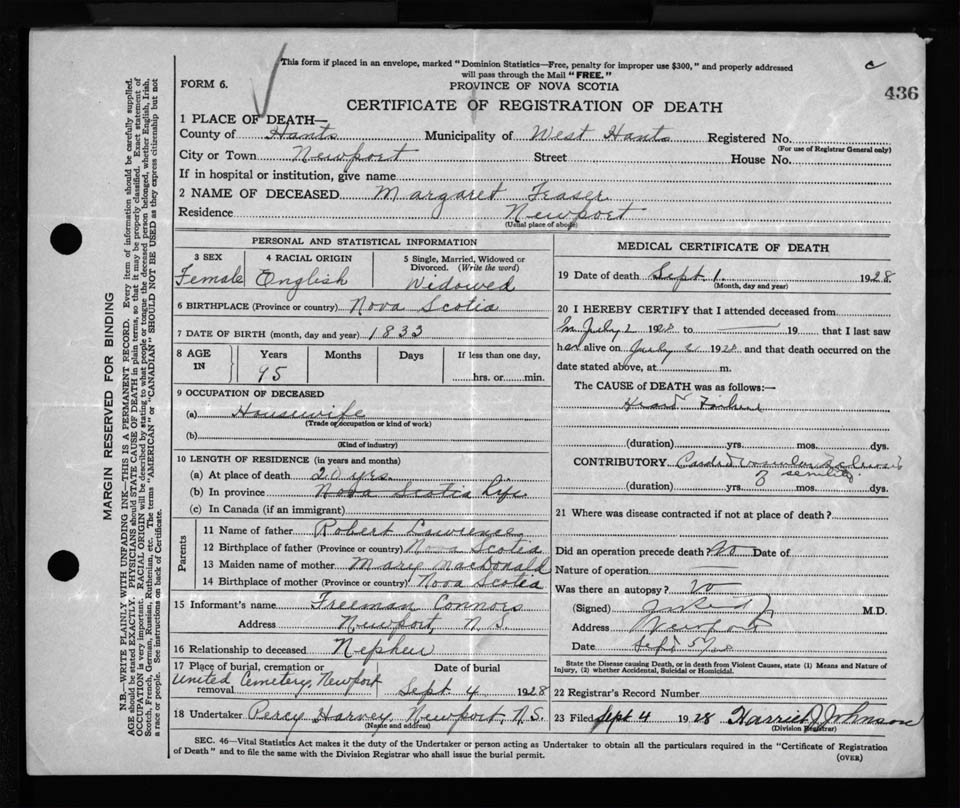 This form if placed in an envelope, marked "Dominion Statistics—Free, penalty for improper use $300," and properly addressed
will pass through the Mail "FREE."
FORM 6.
PROVINCE OF NOVA SCOTIA
436
CERTIFICATE OF REGISTRATION OF DEATH
1 PLACE OF DEATH—
County of Hants Municipality of West Hants Registered No.
(For use of Registrar General only)
City or Town Newport Street House No.
If in hospital or institution, give name
2 NAME OF DECEASED Margaret Fraser
Residence Newport
(Usual place of abode)
PERSONAL AND STATISTICAL INFORMATION
3 SEX 4 RACIAL ORIGIN 5 Single, Married, Widowed or
Divorced. (Write the word)
Female English Widowed
6 BIRTHPLACE (Province or country) Nova Scotia
7 DATE OF BIRTH (month, day and year) 1833
8 AGE IN Years Months Days If less than one day,
95 hrs. or min.
9 OCCUPATION OF DECEASED
(a) Housewife
(Trade occupation or kind of work)
(b)
(Kind of industry)
10 LENGTH OF RESIDENCE (in years and months)
(a) At place of death 20 yrs.
(b) In province Nova Scotia Life
(c) In Canada (if an immigrant)
Parents
11 Name of father Robert Lawrence
12 Birthplace of father (Province or country) Nova Scotia
13 Maiden name of mother Mary MacDonald
14 Birthplace of mother (Province or country) Nova Scotia
15 Informant's name Freeman Connors
Address Newport, N.S.
16 Relationship to deceased Nephew
17 Place of burial, cremation or Date of burial
United Cemetery, Newport
removal Sept 4 1928
18 Undertaker Percy Harvey, Newport, N.S.
(Name and address)
MEDICAL CERTIFICATE OF DEATH
19 Date of death Sept. 1 1928
(Month, day and year)
20 I HEREBY CERTIFY that I attended deceased from
in July 2 1928 to — 19 that I last saw
her alive on July 2 1928 and that death occurred on the
date stated above, at m.
The CAUSE of DEATH was as follows:—
Heart Failure
(duration) yrs. mos. dys.
CONTRIBUTORY
of senility
(duration) yrs. mos. dys.
21 Where was disease contracted if not at place of death?
Did an operation precede death? No Date of
Nature of operation —
Was there an autopsy? No
(Signed) M.D.
Address Newport
Date Sept 5/28
State the Disease causing Death, or in death from Violent Causes, state (1) Means and Nature of
Injury, (2) whether Accidental, Suicidal or Homicidal.
22 Registrar's Record Number
23 Filed Sept 4 1928 Harriet J. Johnson
(Division Registrar)
SEC. 46—Vital Statistics Act makes it the duty of the Undertaker or person acting as Undertaker to obtain all the particulars required in the "Certificate of Registration
of Death" and to file the same with the Division Registrar who shall issue the burial permit.
(OVER)
MARGIN RESERVED FOR BINDING
N.B.—WRITE PLAINLY WITH UNFADING INK—THIS IS A PERMANENT RECORD. Every item of information should be carefully supplied.
AGE should be stated EXACTLY. PHYSICIANS should STATE CAUSE OF DEATH in plain terms, so that it may be properly classified. Exact statement of
OCCUPATION is very important. RACIAL ORIGIN will be described by stating to what people or tongue the deceased person belonged, whether English, Irish,
Scotch, French, German, Russian, Ruthenian, etc. The terms "AMERICAN" or "CANADIAN" SHOULD NOT BE USED as they express citizenship but not
a race or people. See instructions on back of Certificate.